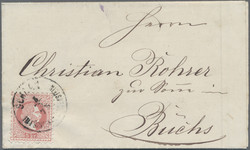 Herrn
Christian Rohrer
zur Sonn in
Buchs